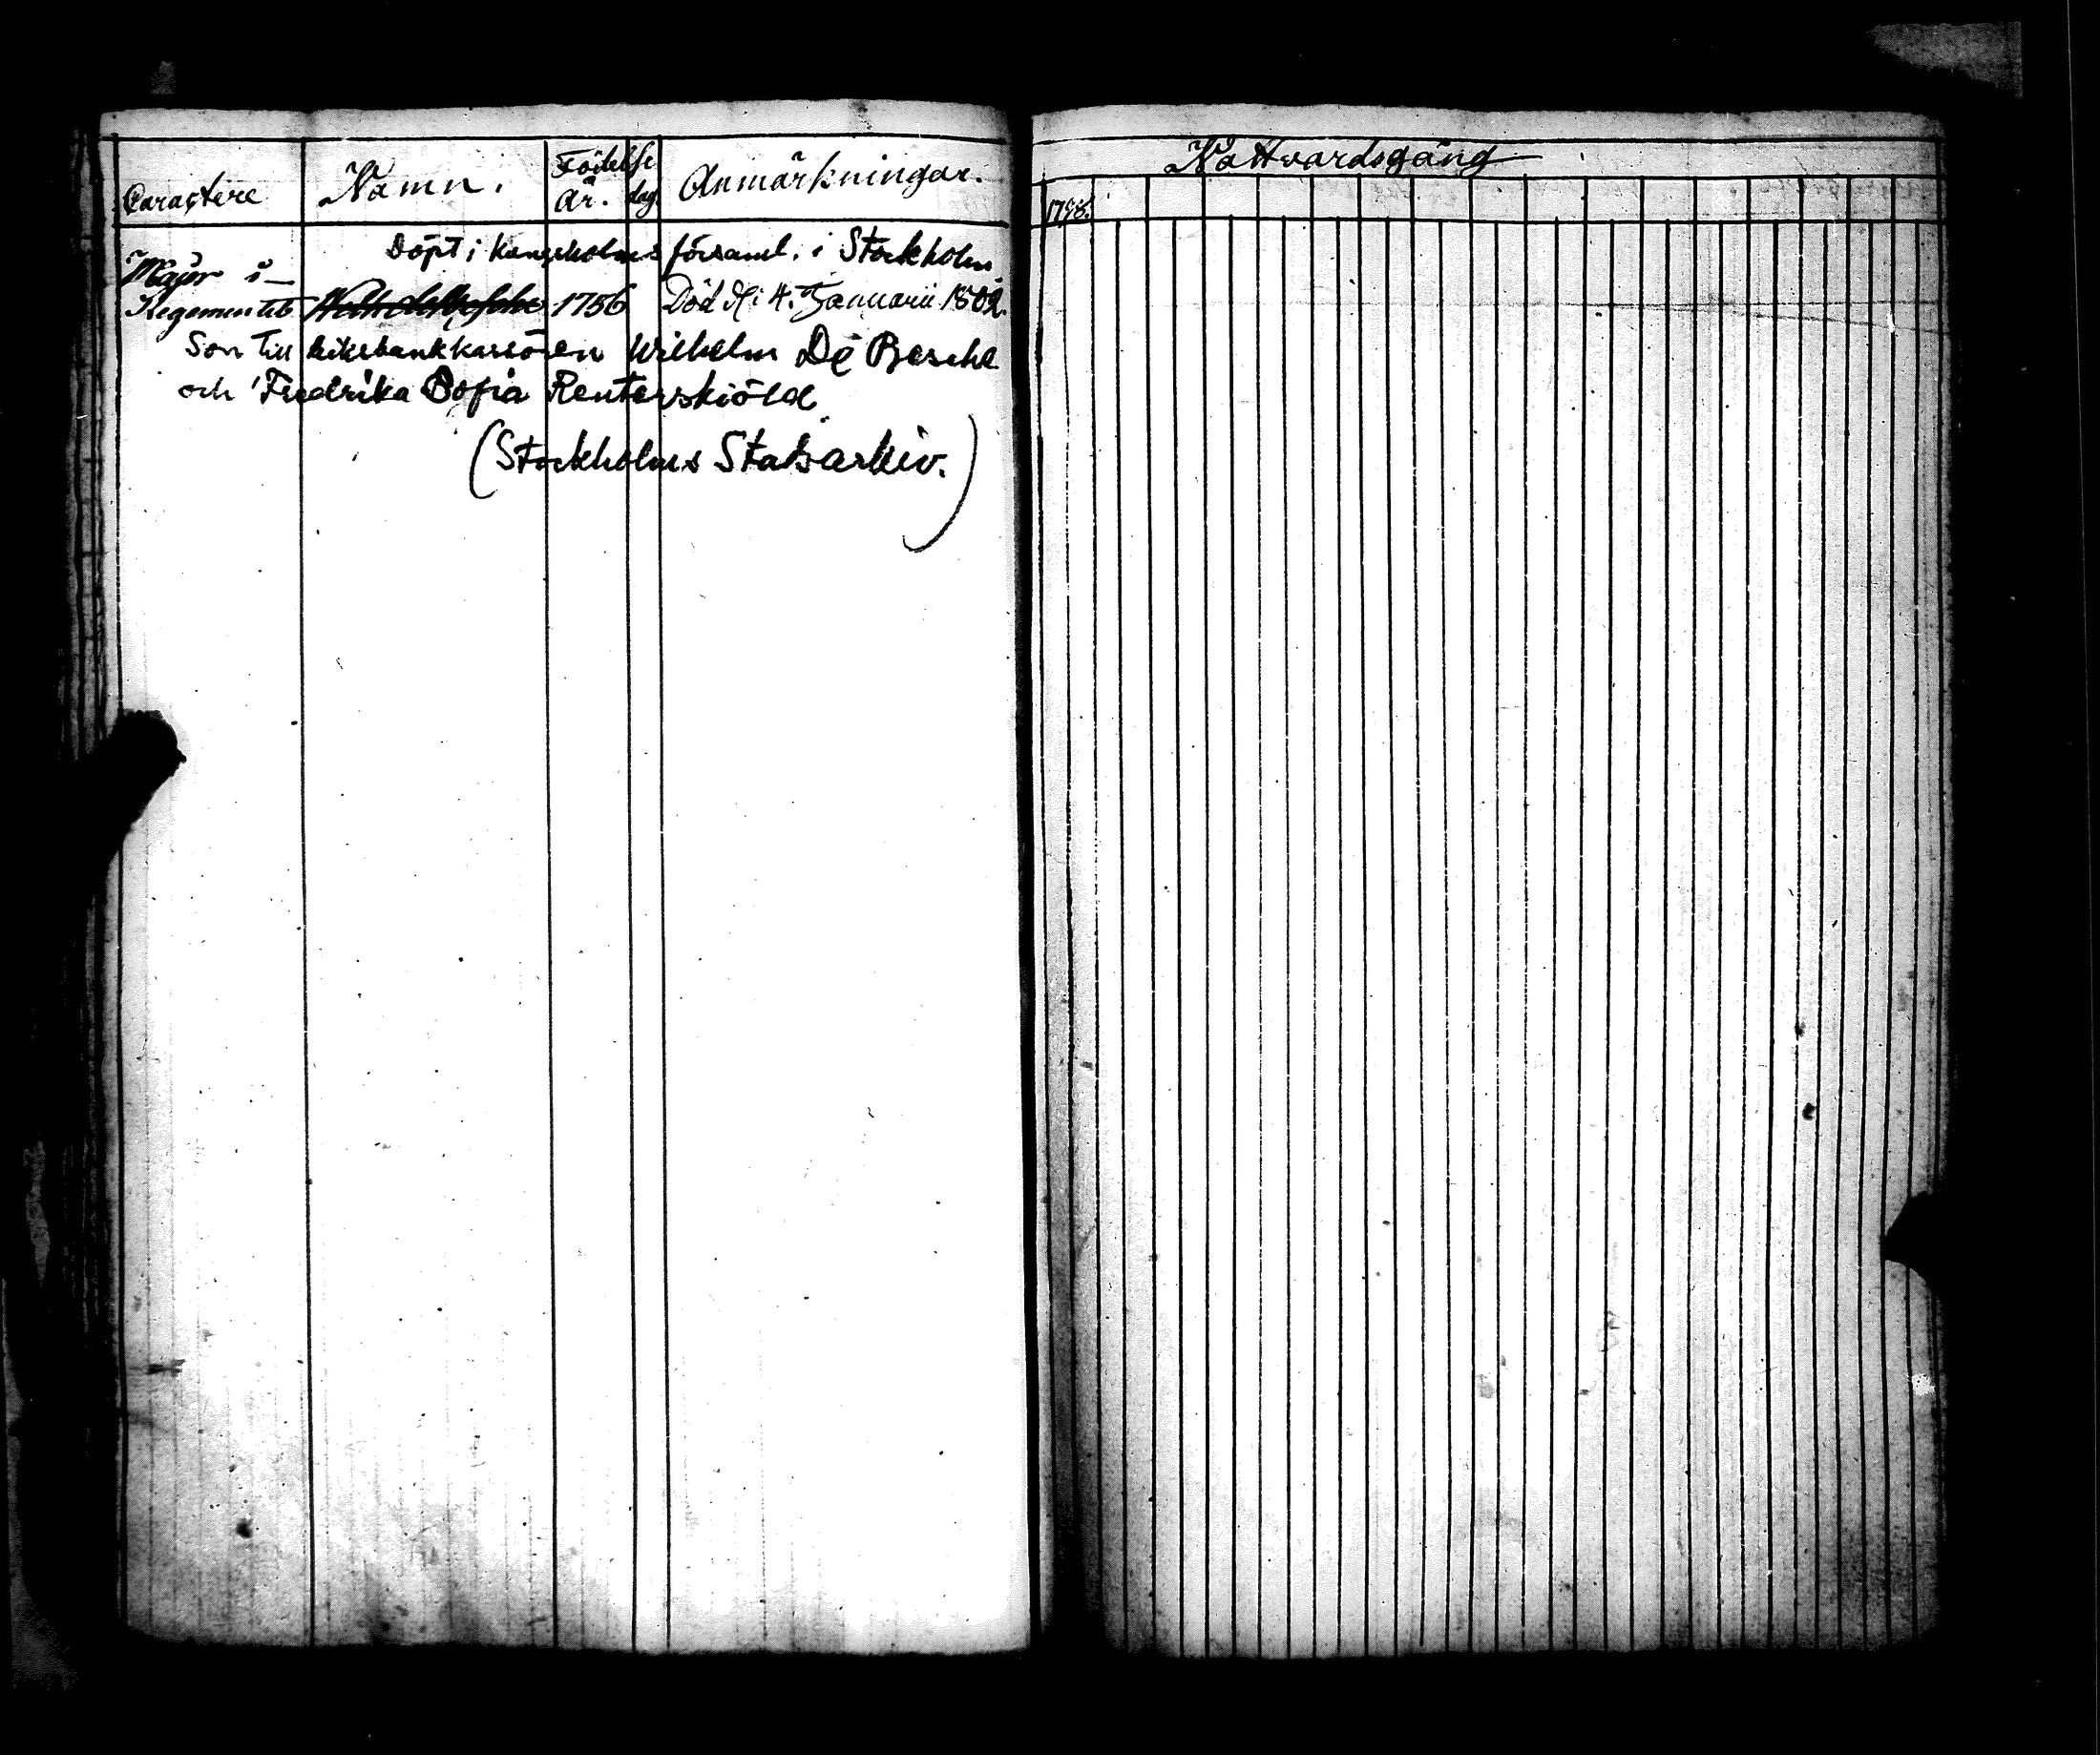 Caractere Namn. Födelse Anmärkningar.
år. dag
Döpt i Kungsholms församl. i Stockholm
Major i
Regementet 1756 Död d. 4. Januarii 1802.
Son till riksbankkassören Wilhelm De Besche
och Fredrika Sofia Reuterskiöld
(Stockholms Stadsarkiv.)
Nattvardsgång
1798.